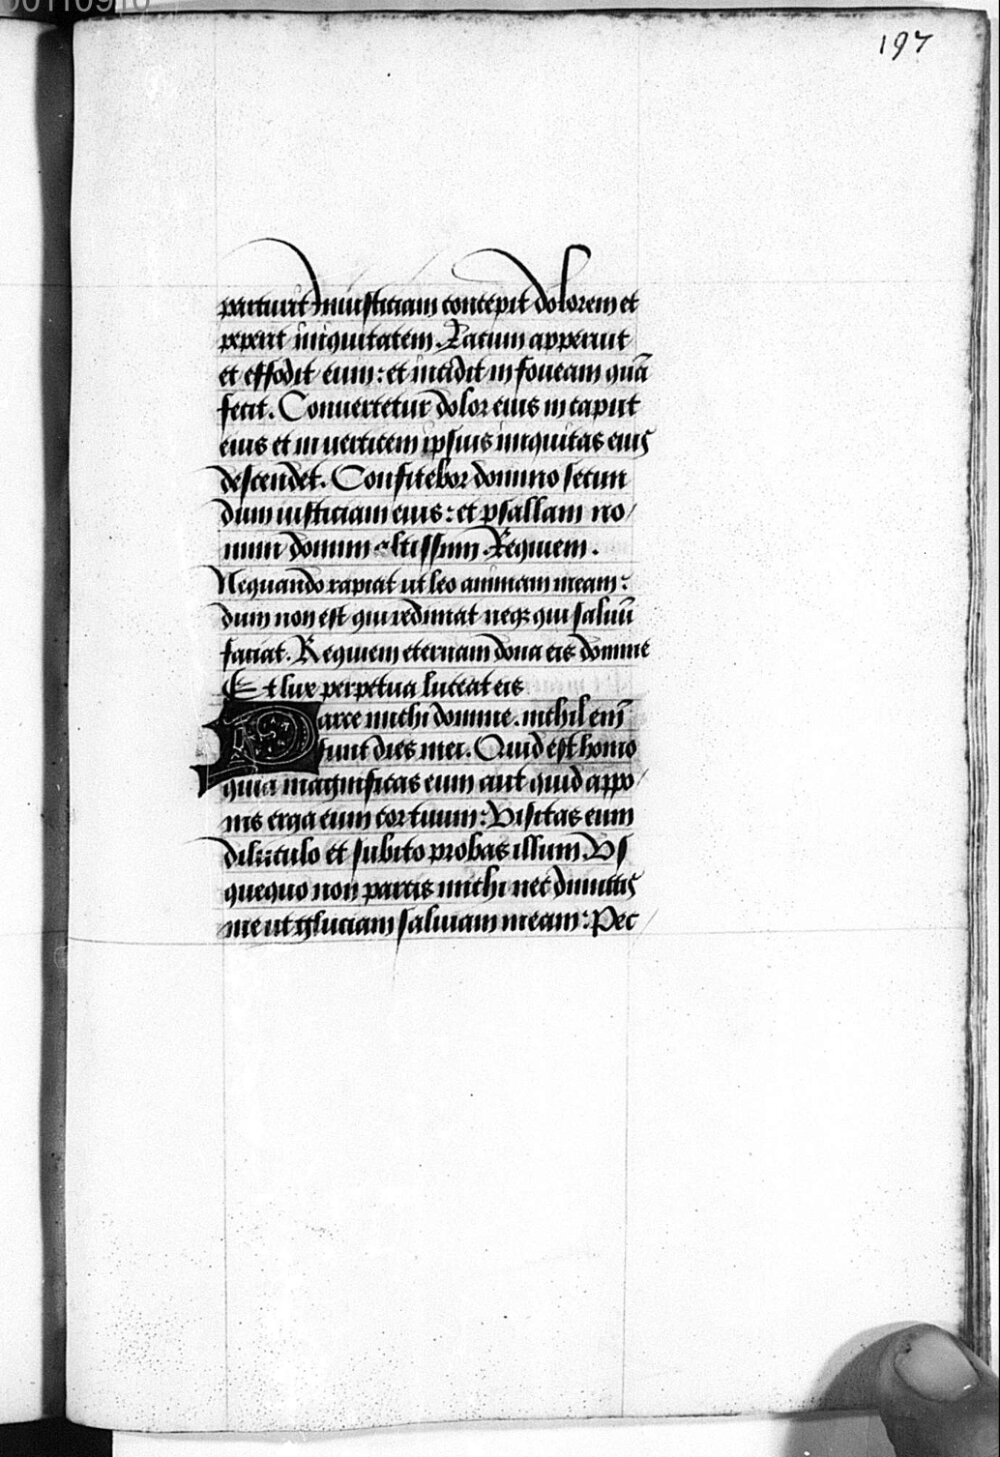 197
parturit iniusticiam concepit dolorem et
peperit iniquitatem. Lacum apperuit
et effodit eum: et incidit in foueam quā
fecit. Conuertetur dolor eius in caput
eius et in verticem ipsius iniquitas eius
descendet. Confitebor domino secun
dum iusticiam eius: et psallam no
mini domini altissimi. Requiem.
Nequando rapiat ut leo animam meam:
dum non est qui redimat neqꝫ qui saluū
faciat. Requiem eternam dona eis domine
Et lux perpetua luceat eis
Parce michi domine. nichil eni͂
sunt dies mei. Quid est homo
quia magnificas eum aut quid appo
nis erga eum cor tuum: Visitas eum
diluculo et subito probas illum. Vs
quequo non parcis michi nec dimittis
me ut gluciam saliuam meam: Pec